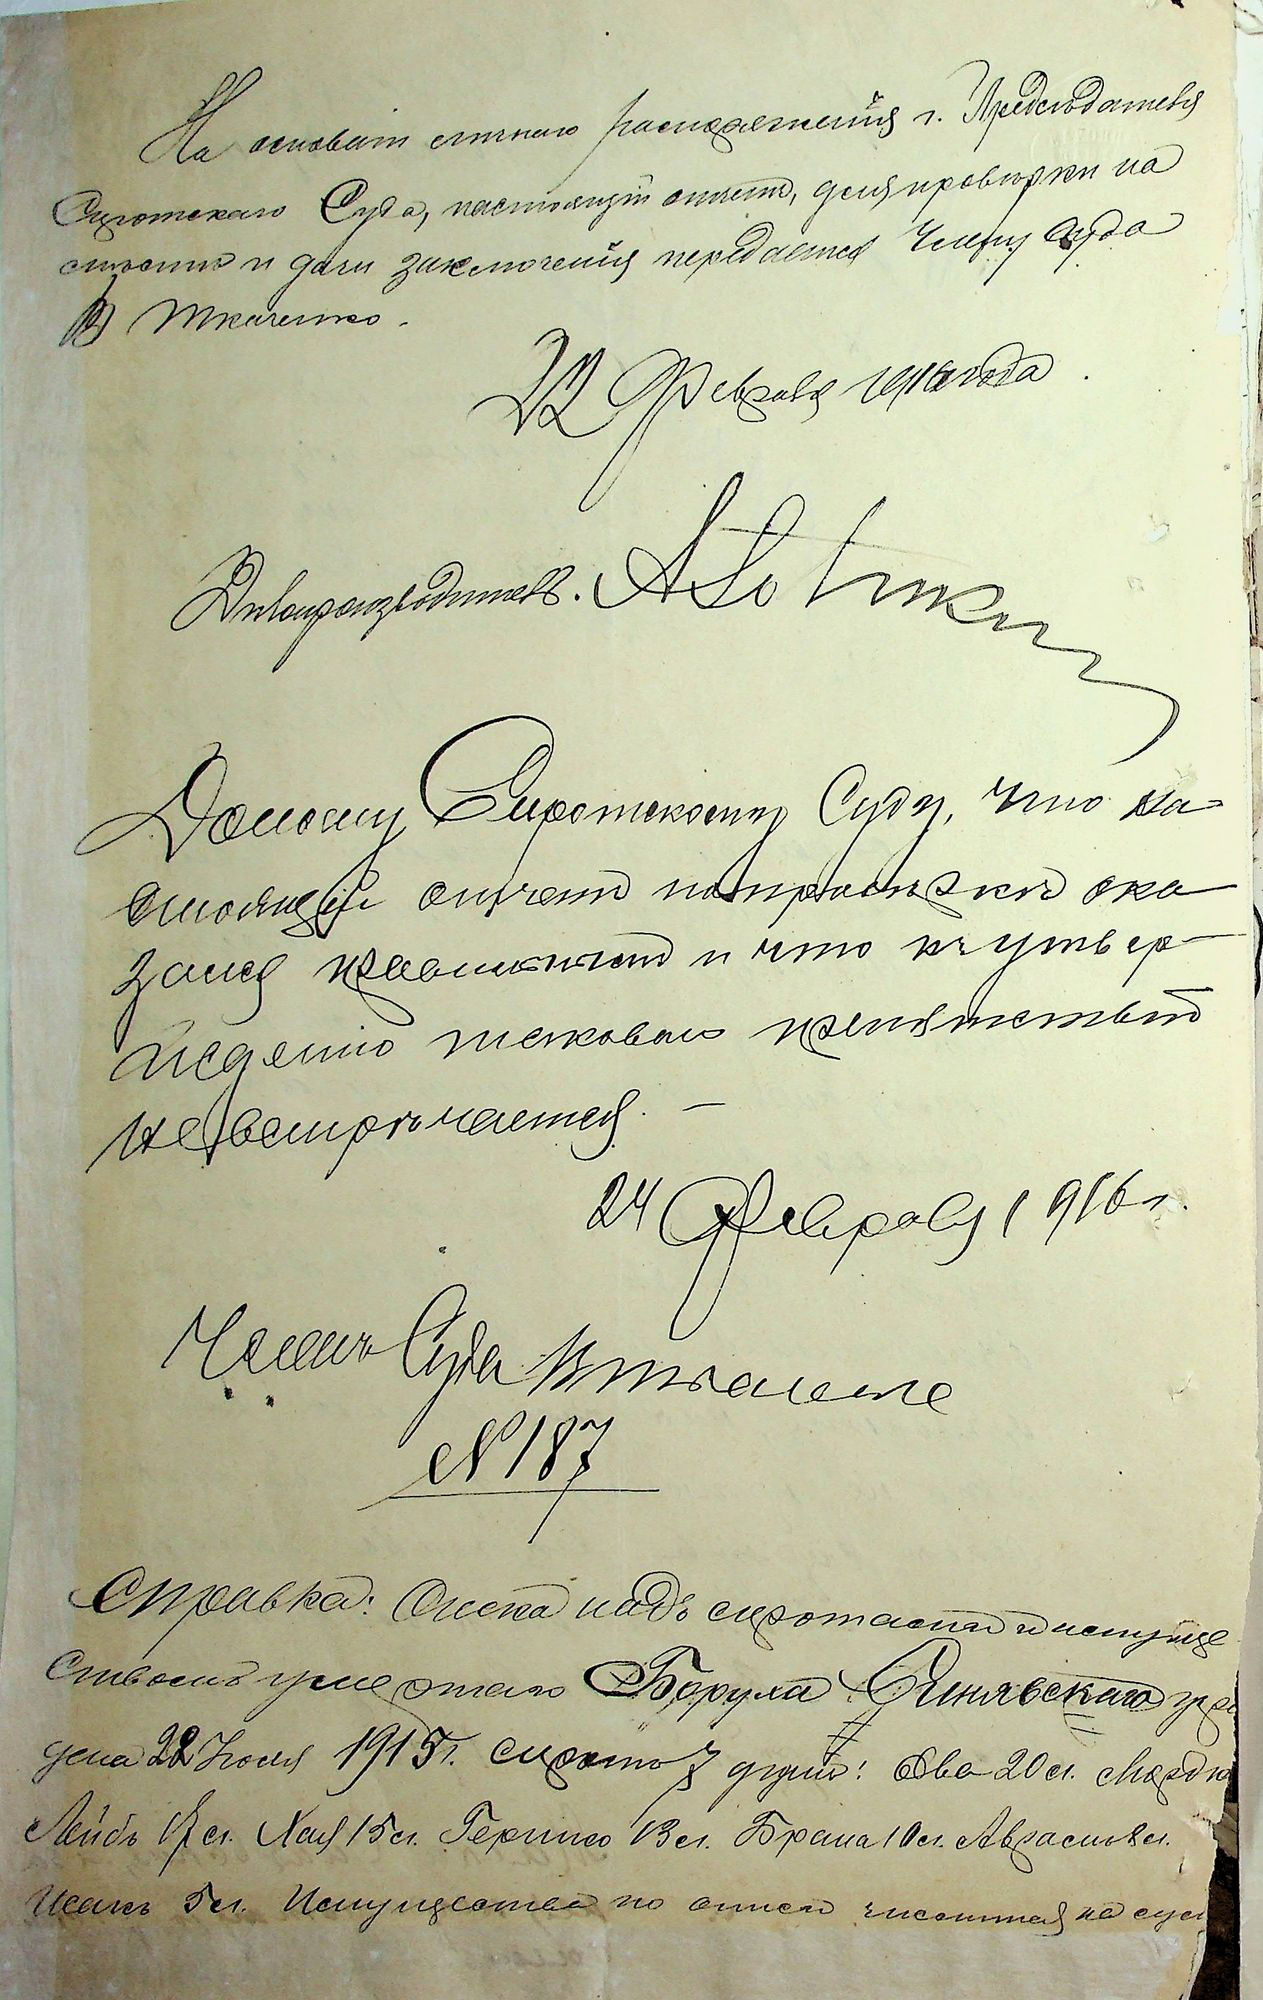 На основаніи личнаго распоряженія г. Предсѣдателя
Сиротскаго Суда, настоящій отчетъ, для провѣрки на
мѣстѣ и дачи заключенія передается Члену Суда
В Ткаченко.
22 Февраля 1916 года.
Дѣлопроизводитель.
Доношу Сиротскому Суду, что на-
стоящій отчетъ по провѣркѣ ока-
зался правильнымъ и что къ утвер-
жденію таковаго препятствій
не встрѣчается. —
24 Февраля 1916 г.
Членъ Суда В Ткаченко
№ 187
Справка: Опека надъ сиротами и имуще
ствомъ умершаго Боруха Синявскаго учре
дена 22 Іюля 1915 г. сиротъ 7 душъ: Ева 20 л. Мордко
Лейбъ 17 л. Хая 15 л. Гершко 13 л. Брана 10 л. Аврамъ 8 л.
Исакъ 5 л. Имущества по описи числится на сум